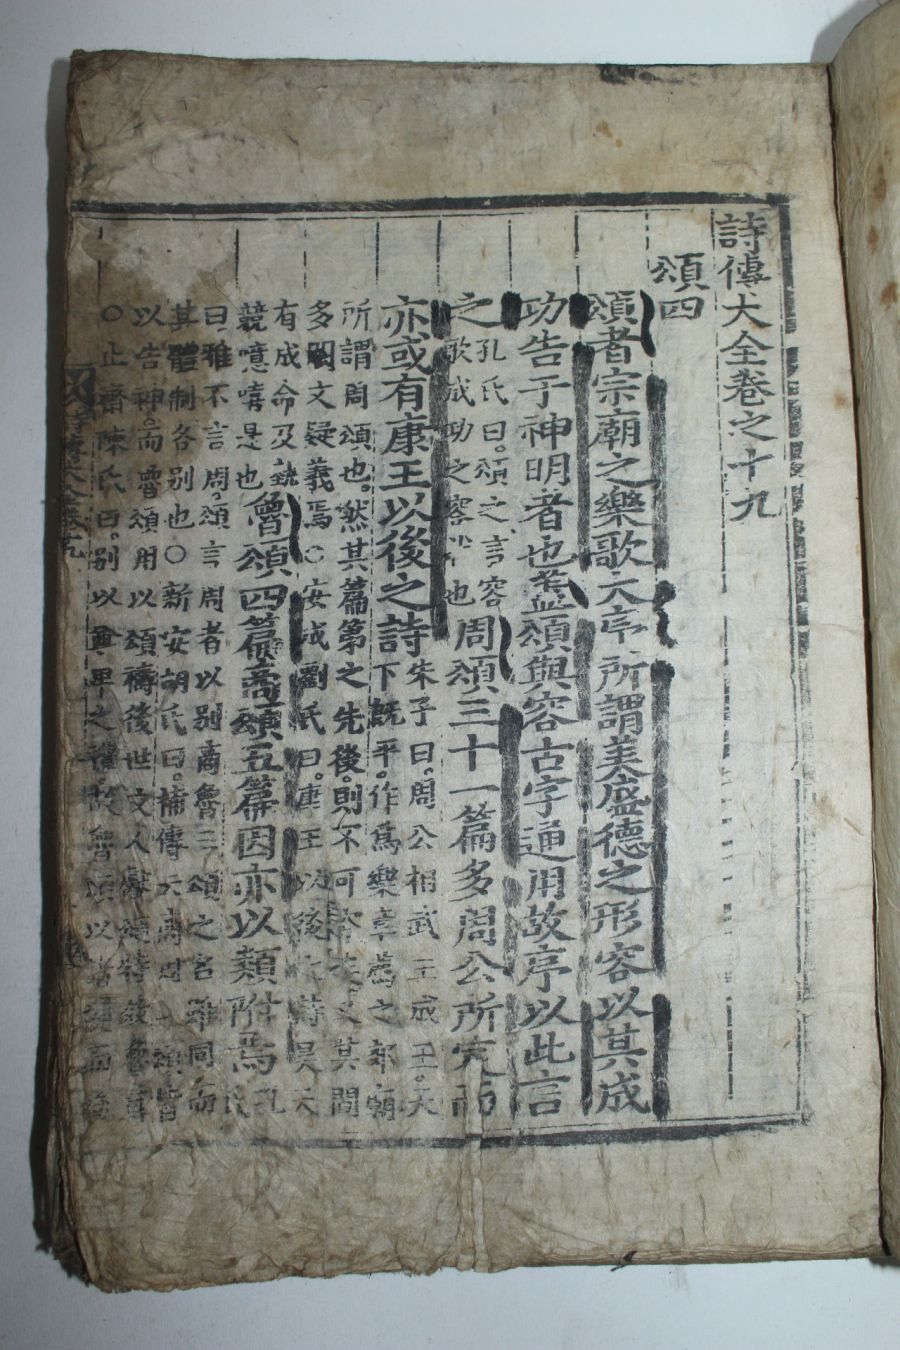 詩傳大全卷之十九
頌四
頌者宗廟之樂歌大序所謂美盛德之形容以其成
功告于神明者也盖頌與容古字通用故序以此言
之
孔氏曰。頌之言容
歌成功之容狀也
周頌三十一篇多周公所定而
亦或有康王以後之詩
朱子曰。周公相武王成王。天
下旣平。作爲樂章薦之郊廟
所謂周頌也。然其篇第之先後。則不可
多闕文疑義焉。○安成劉氏曰。康王以後之詩昊天
有成命及執
競噫嘻是也
魯頌四篇商頌五篇因亦以類附焉
孔氏
曰雅不言周。頌言周者以別商魯三頌之名雖同而
其體制各別也○新安胡氏曰。
以告神。而魯頌用以頌禱後世文人
○止齋陳氏曰。別以尊卑之禮。故魯頌以